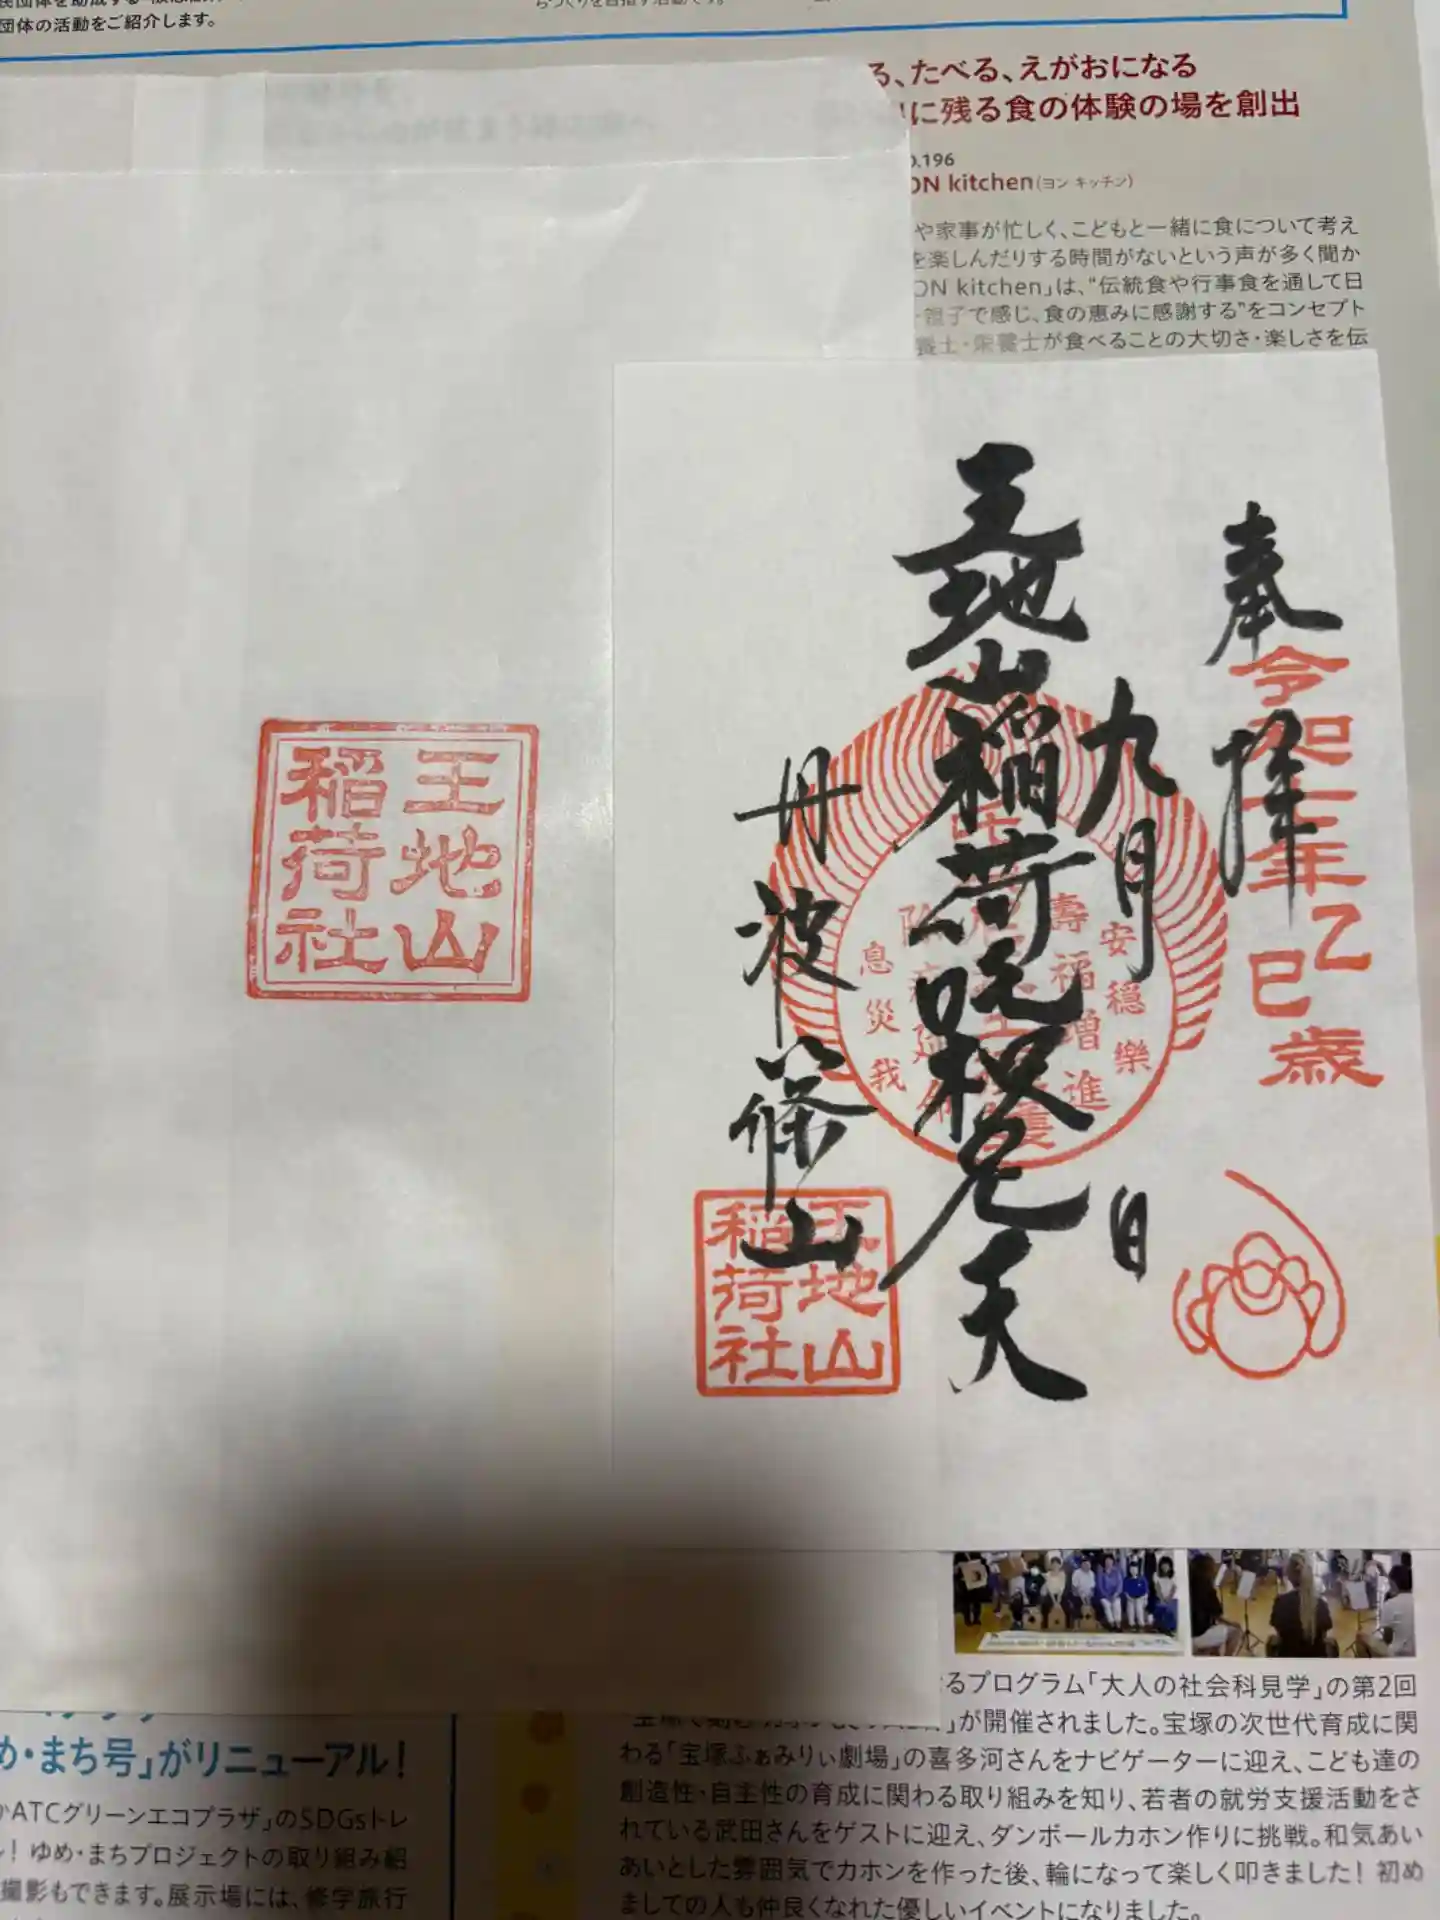 団体の活動をご紹介します。
る、たべる、えがおになる
に残る食の体験の場を創出
.196
ON kitchen(ヨン キッチン)
や家事が忙しく、こどもと一緒に食について考え
を楽しんだりする時間がないという声が多く聞か
ON kitchen」は、“伝統食や行事食を通して日
親子で感じ、食の恵みに感謝する”をコンセプト
養士・栄養士が食べることの大切さ・楽しさを伝
王地山
稲荷社
奉拝
令和七年乙巳歳
九月 日
王地山稲荷吒枳尼天
丹波篠山
安穏樂
壽福増進
息災我
王地山
稲荷社
るプログラム「大人の社会科見学」の第2回
」が開催されました。宝塚の次世代育成に関
わる「宝塚ふぁみりぃ劇場」の喜多河さんをナビゲーターに迎え、こども達の
創造性・自主性の育成に関わる取り組みを知り、若者の就労支援活動をさ
れている武田さんをゲストに迎え、ダンボールカホン作りに挑戦。和気あい
あいとした雰囲気でカホンを作った後、輪になって楽しく叩きました! 初め
ましての人も仲良くなれた優しいイベントになりました。
め・まち号」がリニューアル!
ATCグリーンエコプラザ」のSDGsトレ
! ゆめ・まちプロジェクトの取り組み紹
撮影もできます。展示場には、修学旅行